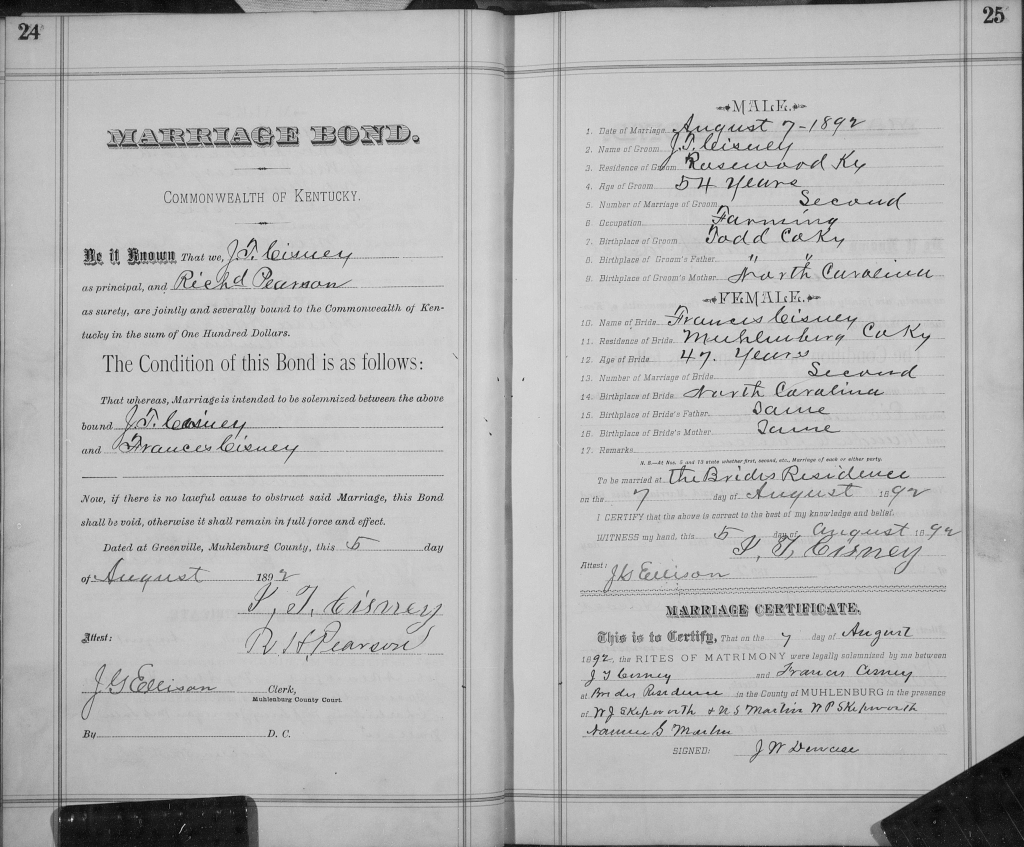 24
MARRIAGE BOND.
COMMONWEALTH OF KENTUCKY.
Be it Known That we, J. T. Cisney
as principal, and Richd Pearson
as surety, are jointly and severally bound to the Commonwealth of Ken-
tucky in the sum of One Hundred Dollars.
The Condition of this Bond is as follows:
That whereas, Marriage is intended to be solemnized between the above
bound J. T. Cisney
and Frances Cisney
Now, if there is no lawful cause to obstruct said Marriage, this Bond
shall be void, otherwise it shall remain in full force and effect.
Dated at Greenville, Muhlenburg County, this 5 day
of August 1892
T. Cisney
Attest: R H, Pearson
J G Ellison Clerk,
Muhlenburg County Court.
By D. C.
25
MALE.
1. Date of Marriage August 7-1892
2. Name of Groom J. T. Cisney
3. Residence of Groom Rosewood Ky
4. Age of Groom 54 Years
5. Number of Marriage of Groom Second
6. Occupation Farming
7. Birthplace of Groom Todd Co Ky
8. Birthplace of Groom's Father " "
9. Birthplace of Groom's Mother North Carolina
FEMALE.
10. Name of Bride Frances Cisney
11. Residence of Bride Muhlenburg Co Ky
12. Age of Bride 47. Years
13. Number of Marriage of Bride Second
14. Birthplace of Bride North Carolina
15. Birthplace of Bride's Father Same
16. Birthplace of Bride's Mother Same
17. Remarks
N. B.—At Nos. 5 and 13 state whether first, second, etc., Marriage of each or either party.
To be married at the Brides Residence
on the 7 day of August 1892
I CERTIFY that the above is correct to the best of my knowledge and belief.
WITNESS my hand, this 5 day of August 1892
T. Cisney
Attest: J G Ellison
MARRIAGE CERTIFICATE.
This is to Certify, That on the 7 day of August
1892, the RITES OF MATRIMONY were legally solemnized by me between
J T Cisney and Francis Cisney
at Brides Residence in the County of MUHLENBURG in the presence
of W J Skipworth & N S Martin W P Skipworth
G Martin
SIGNED: J W